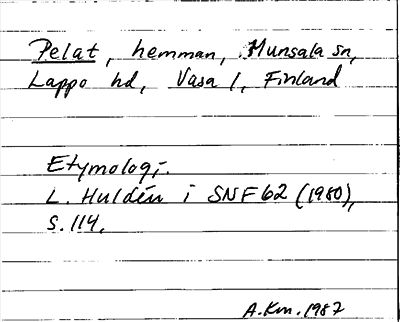 Pelat, hemman, Munsala sn,
Lappo hd, Vasa l, Finland
Etymologi.
L. Huldén i SNF 62 (1980),
s. 114.
A.Km. 1987